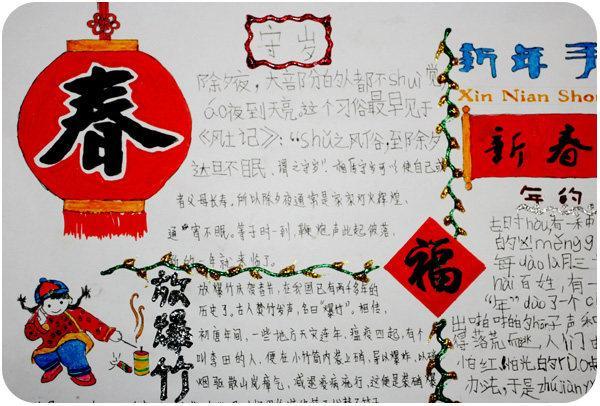 春
守岁
除夕夜,大部分的人都不shuì觉
áo夜到天亮。这个习俗最早见于
《风土记》:“shǔ之风俗,至除夕
达旦不眠,谓之守岁”。相信守岁可以使自己或
者父母长寿。所以除夕夜通常是家家灯火辉煌,
通宵不眠。等子时一到,鞭炮声此起彼落,
的一年就来临了。
放爆竹
放爆竹庆贺春节,在我国已有两千多年的
历史了。古人焚竹发声,名曰“爆竹”。相传,
初唐年间,一些地方天灾连年,瘟疫四起,有个
叫李田的人,便在小竹筒内装上硝,导以爆炸,以
烟驱散山岚瘴气,减退疫病流行。这便是
福
新年手
Xin Nian Sho
新春
年的
去日寸hòu有一种
的凶měng
每dào腊月三
bǎi百姓,有一
“年”dào了一个
出啪啪的shēng声和
得落荒而逃,人们
怕红、怕光的
办法,于是zhújiàn